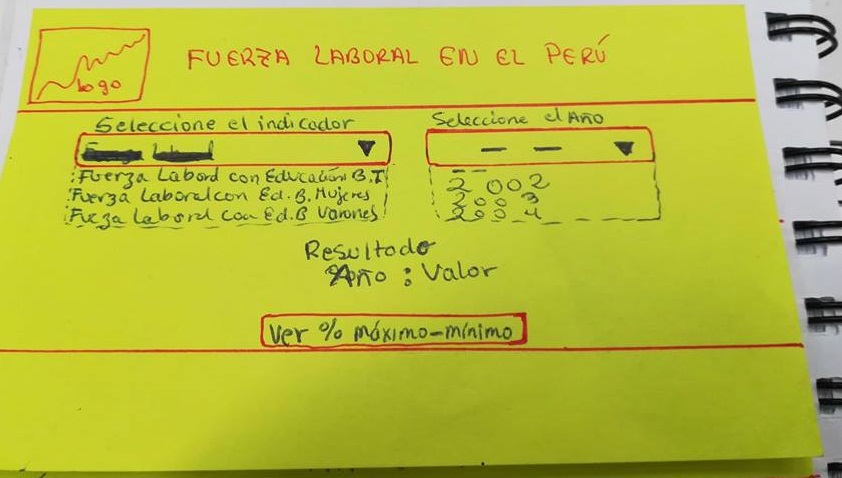 logo
FUERZA LABORAL EN EL PERÚ
Seleccione el indicador
Seleccione el Año
Fuerza Laboral con Educación B.T
Fuerza Laboral con Ed. B. Mujeres
Fuerza Laboral con Ed. B Varones
2002
2003
2004
Resultado
Año : Valor
Ver % máximo-mínimo